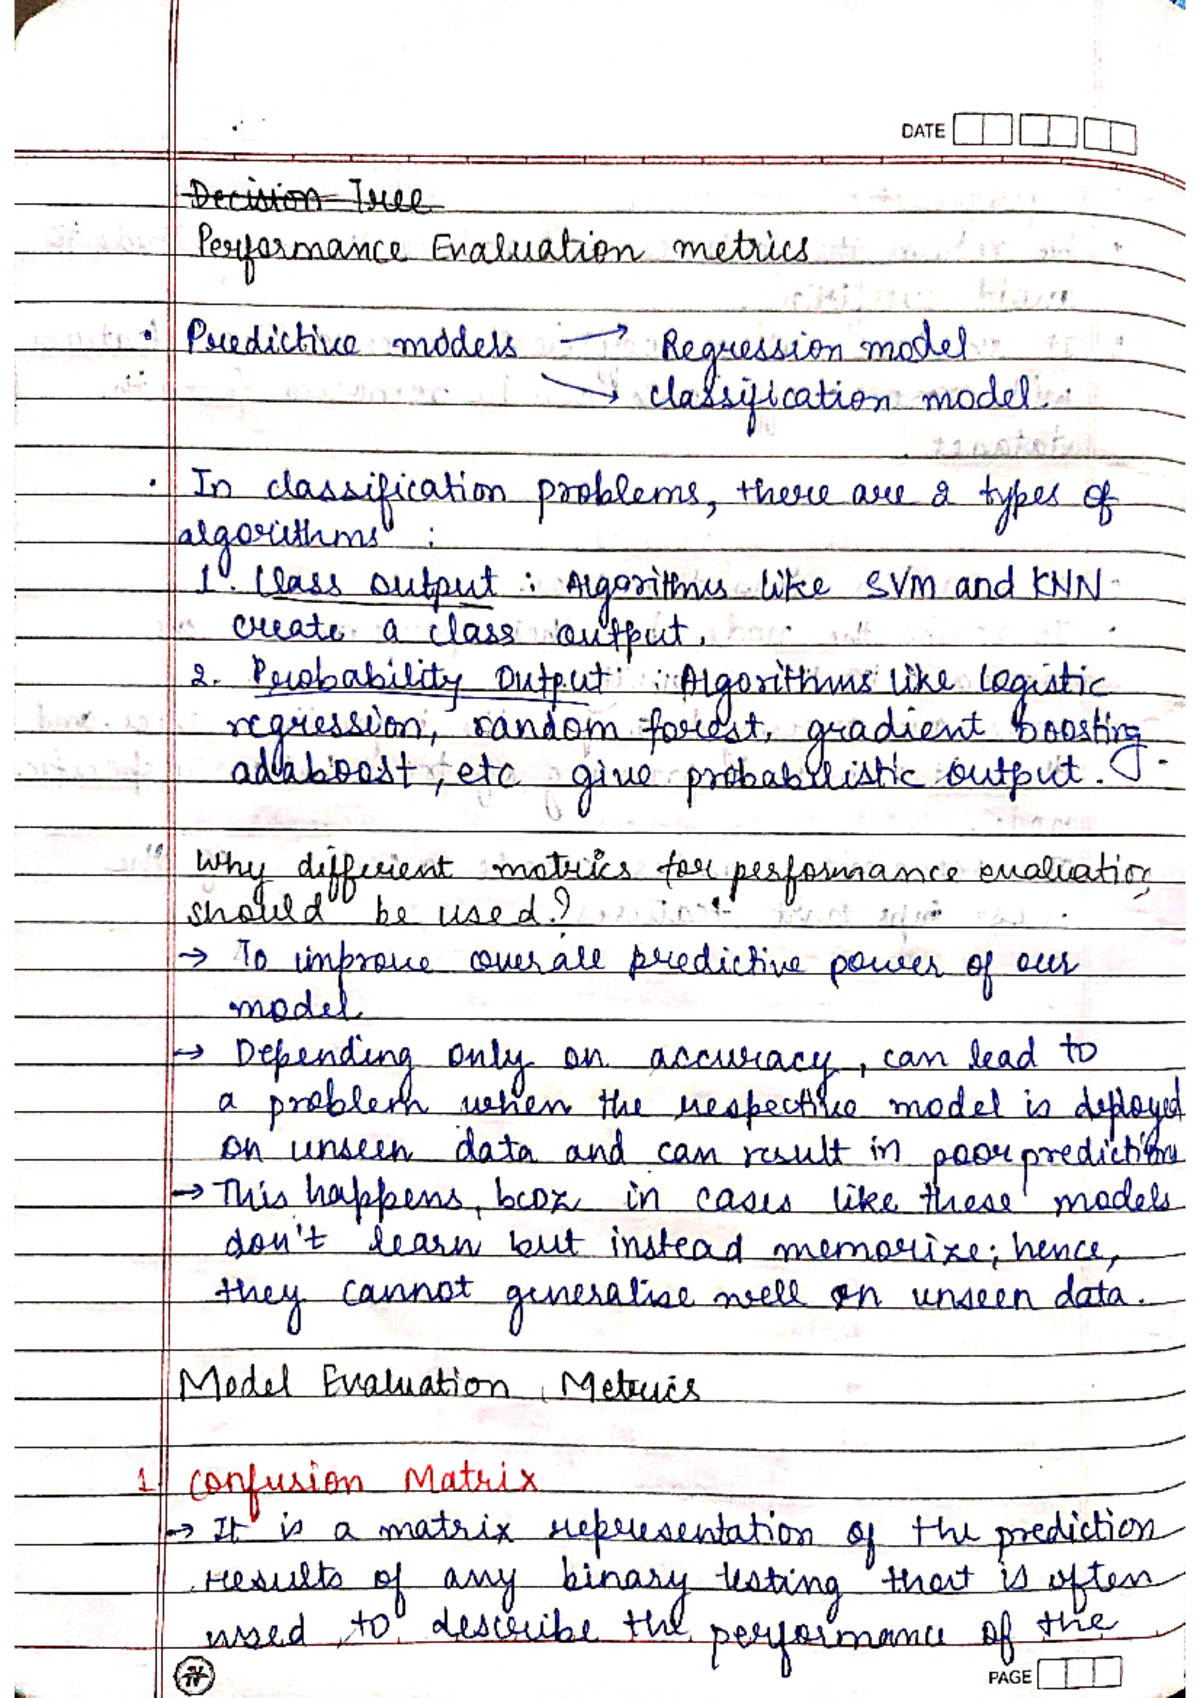 DATE
Decision Tree
Performance Evaluation metrics
• Predictive models → Regression model
→ classification model.
• In classification problems, there are 2 types of
algorithms :
1. Class output : Algorithms like SVM and KNN
create a class output.
2. Probability Output : Algorithms like logistic
regression, random forest, gradient boosting
adaboost, etc give probabilistic output.
Why different metrics for performance evaluation
should be used?
→ To improve overall predictive power of our
model
→ Depending only on accuracy, can lead to
a problem when the respective model is deployed
on unseen data and can result in poor predictions
→ This happens, bcoz in cases like these models
don't learn but instead memorize; hence,
they cannot generalise well on unseen data.
Model Evaluation Metrics
1. Confusion Matrix
→ It is a matrix representation of the prediction
results of any binary testing that is often
used to describe the performance of the
PAGE